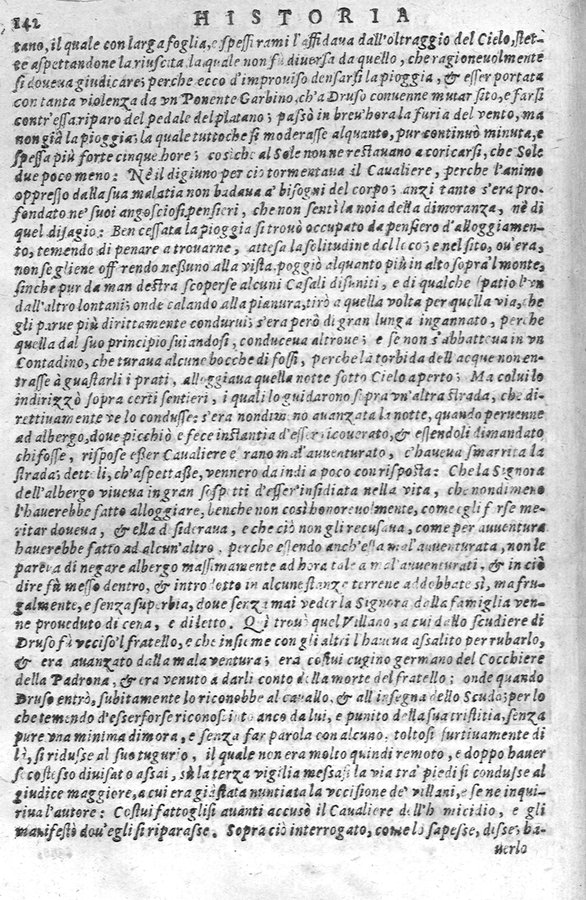 142 HISTORIA
tano, il quale con larga foglia, e spessi rami l'affidava dall'oltraggio del Cielo, stet-
te aspettandone la riuscita, la quale non fù diversa da quello, che ragionevolmente
si doveva giudicare; perche ecco d'improviso densarsi la pioggia, & esser portata
con tanta violenza da vn Ponente Garbino, ch'a Druso convenne mutar sito, e farsi
contr'essa riparo del pedale del platano; passò in breu'hora la furia del vento, ma
non già la pioggia; la quale tuttoche si moderasse alquanto, pur continuò minuta, e
spessa più forte cinque hore; cosiche al Sole non ne restavano a coricarsi, che Sole
due poco meno: Nè il digiuno per ciò tormentava il Cavaliere, perche l'animo
oppresso dalla sua malatia non badava a' bisogni del corpo; anzi tanto s'era pro-
fondato ne' suoi angosciosi pensieri, che non sentì la noia della dimoranza, nè di
quel disagio: Ben cessata la pioggia si trovò occupato da pensiero d'alloggiamen-
to, temendo di penare a trouarne, attesa la solitudine del loco; e nel sito, ou'era,
non se gliene offrendo nessuno alla vista poggiò alquanto più in alto sopra'l monte,
finche pur da man destra scoperse alcuni Casali disuniti, e di qualche spatio l'vn
dall'altro lontani; onde calando alla pianura, tirò a quella volta per quella via, che
gli parue più dirittamente condurui; s'era però di gran lunga ingannato, perche
quella dal suo principio suiandosi, conduceua altroue; e se non s'abbatteua in vn
Contadino, che turava alcune bocche di fossi, perche la torbida dell'acque non en-
trasse à guastarli i prati, alloggiaua quella notte sotto Cielo aperto; Ma colui lo
indirizzò sopra certi sentieri, i quali lo guidarono sopra vn'altra strada, che di-
rettivamente ve lo condusse; s'era nondimeno auanzata la notte, quando peruenne
ad albergo, doue picchiò e fece instantia d'esser ricouerato, & essendoli dimandato
chi fosse, rispose esser Cavaliere errano mal'auuenturato, c'haueua smarrita la
strada; dettoli, ch'aspettasse, vennero da indi a poco con risposta: Che la Signora
dell'albergo viueua in gran sospetti d'esser insidiata nella vita, che nondimeno
l'hauerebbe fatto alloggiare, benche non così honoreuolmente, come egli forse me-
ritar doueua, & ella desiderava, e che ciò non gli recusava, come per auuentura
hauerebbe fatto ad alcun'altro, perche essendo anch'essa mal'auuenturata, non le
pareua di negare albergo massimamente ad hora tale a mal'auuenturati, & in ciò
dire fù messo dentro, & introdotto in alcune stanze terrene addobbate sì, ma fru-
galmente, e senza superbia, doue senza mai veder la Signora dalla famiglia ven-
ne proueduto di cena, e di letto. Quì trouò quel Villano, a cui dallo scudiere di
Druso fù vcciso'l fratello, e che insieme con gli altri l'haueua assalito per rubarlo,
& era auanzato dalla mala ventura; era costui cugino germano del Cocchiere
della Padrona, & era venuto a darli conto della morte del fratello; onde quando
Druso entrò, subitamente lo riconobbe al cauallo, & all'insegna dello Scudo; per lo
che temendo d'esser forse riconosciuto anco da lui, e punito della sua tristitia, senza
pure vna minima dimora, e senza far parola con alcuno, toltosi furtiuamente di
lì, si ridusse al suo tugurio, il quale non era molto quindi remoto, e doppo hauer
seco stesso diuisato assai, sù la terza vigilia messasi la via tra' piedi si condusse al
giudice maggiore, a cui era già stata nuntiata la vccisione de' villani, e se ne inqui-
riua l'autore: Costui fattoglisi auanti accusò il Caualiere dell'homicidio, e gli
manifestò dou'egli si riparasse. Sopra ciò interrogato, come lo sapesse, disse; ha-
uerlo